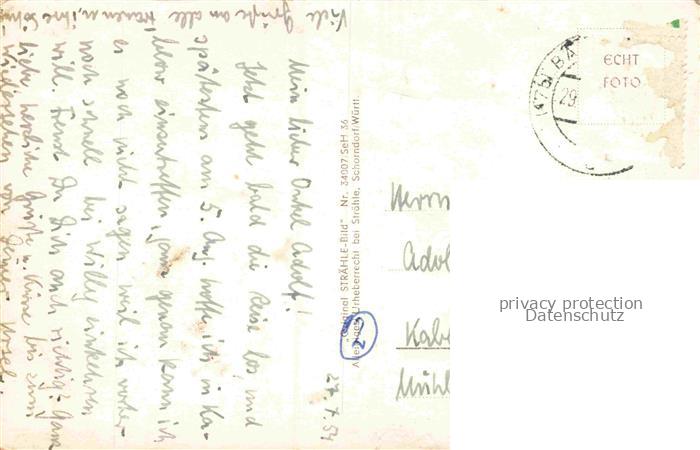 27.7.54
Mein lieber Onkel Adolf!
Jetzt geht bald die Reise los und
spätestens am 5. Aug. hoffe ich in Ka-
below einzutreffen, ganz genau kann ich
es noch nicht sagen weil ich vorher
noch schnell bei Willy einkehren
will. Freust Du Dich auch richtig? Ganz
liebe herzliche Grüße u. Küsse bis zum
Wiedersehen von Deiner
Viele Grüße an alle
"Original STRÄHLE-Bild" Nr. 34007 SeH 36
Alleiniges Urheberrecht bei Strähle, Schorndorf/Württ.
2
Herrn
Adol
Kabe
Mühl
ECHT
FOTO
(17b) BA
29.
privacy protection
Datenschutz